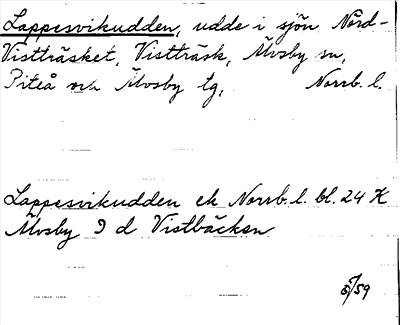 Lappesvikudden, udde i sjön Nörd-
Vistträsket, Vistträsk, Älvsby sn,
Piteå och Älvsby tg, Norrb. l.
Lappesvikudden ek Norrb. l. bl. 24 K
Älvsby 9 d Vistbäcken
/59